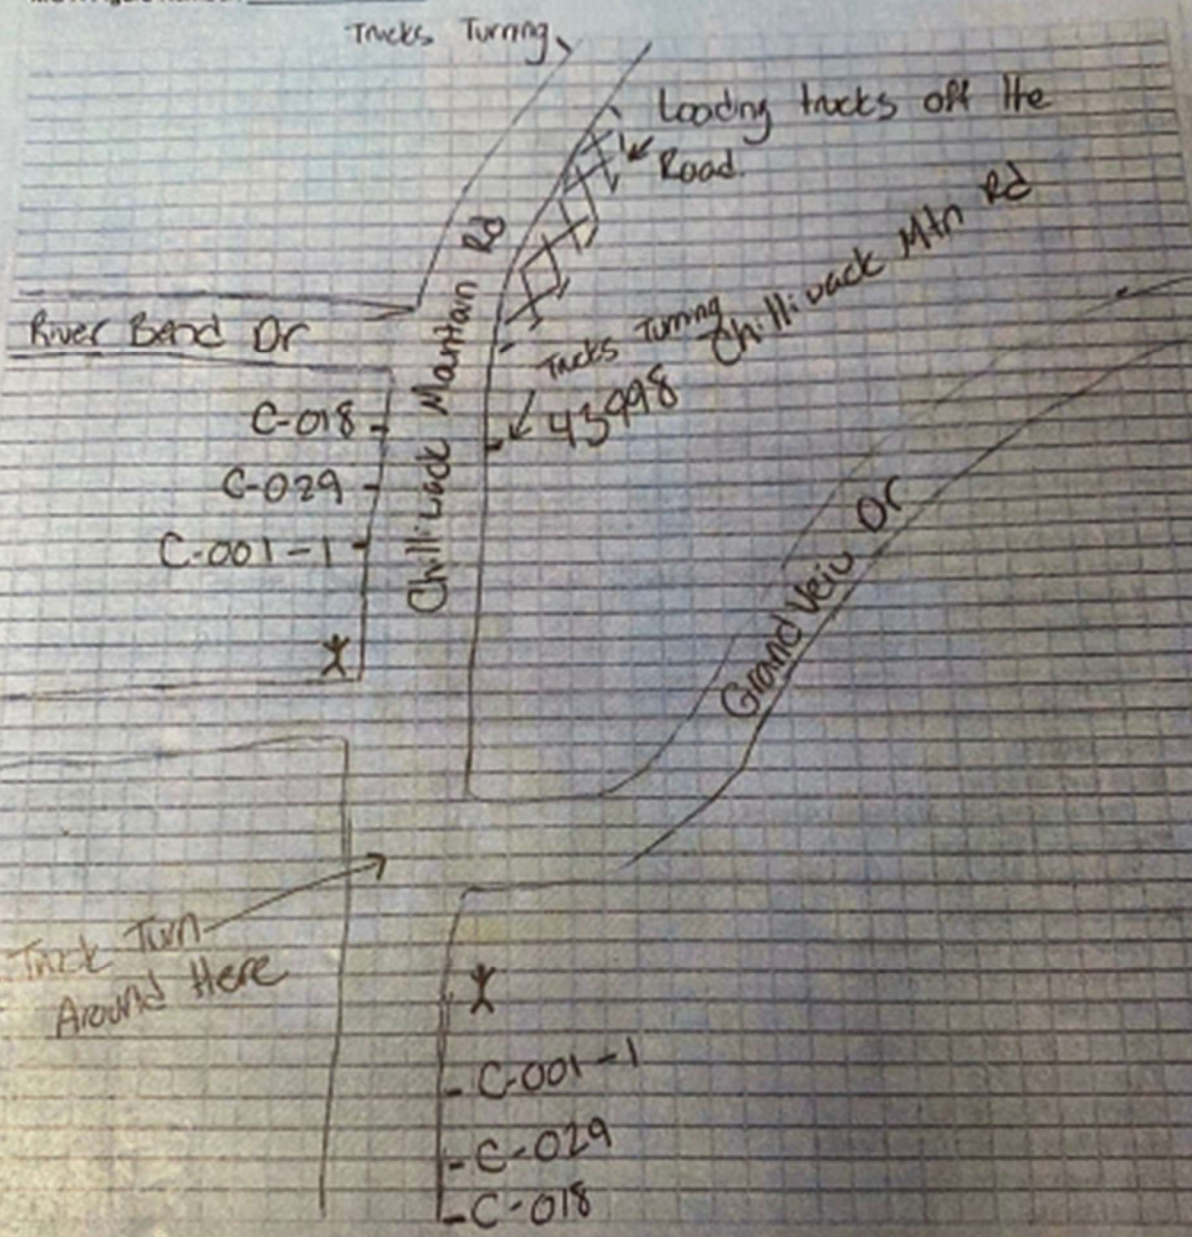 Trucks Turning
Loading trucks off the
Road.
River Bend Dr
Chilliwack Mantain Rd
Trucks Turning
43998 Chilliwack Mtn Rd
C-018
C-029
C-001-1
Grand Veiw Dr
Truck Turn
Around Here
C-001-1
C-029
C-018